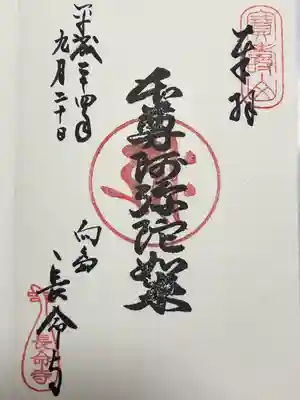 寶壽山
奉拝
本尊阿弥陀如来
向島
長命寺
長命寺
平成二十四年
九月二十日